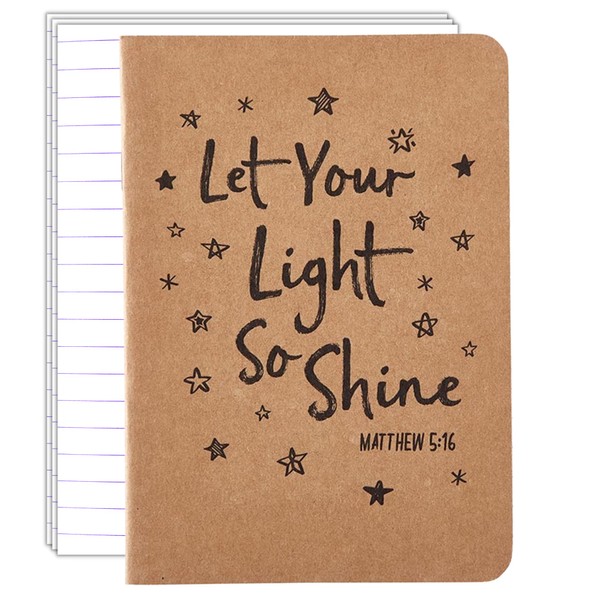 Let Your
Light
So
Shine
MATTHEW 5:16